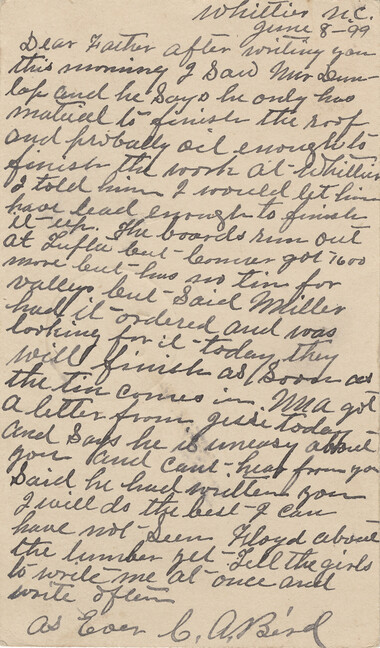 Whittier N.C.
June 8-99
Dear Father after writing you
this morning I Said Mr Dun-
lap and he Says he only has
matual to finish the roof
and probally oil enough to
finish the work at Whittier
I told him I would let him
have lead enough to finish
it up. The boards run out
at Tufta but Conner got 1600
more but has no tin for
valleys but Said Miller
had it ordered and was
looking for it today they
will finish as Soon as
the tin comes in MA got
a letter from Jesse today
and Says he is uneasy about
you and cant hear from you
Said he had written you
I will do the best I can
have not Seen Floyd about
the lumber yet Tell the girls
to write me at once and
write often
As Ever C. A. Bird